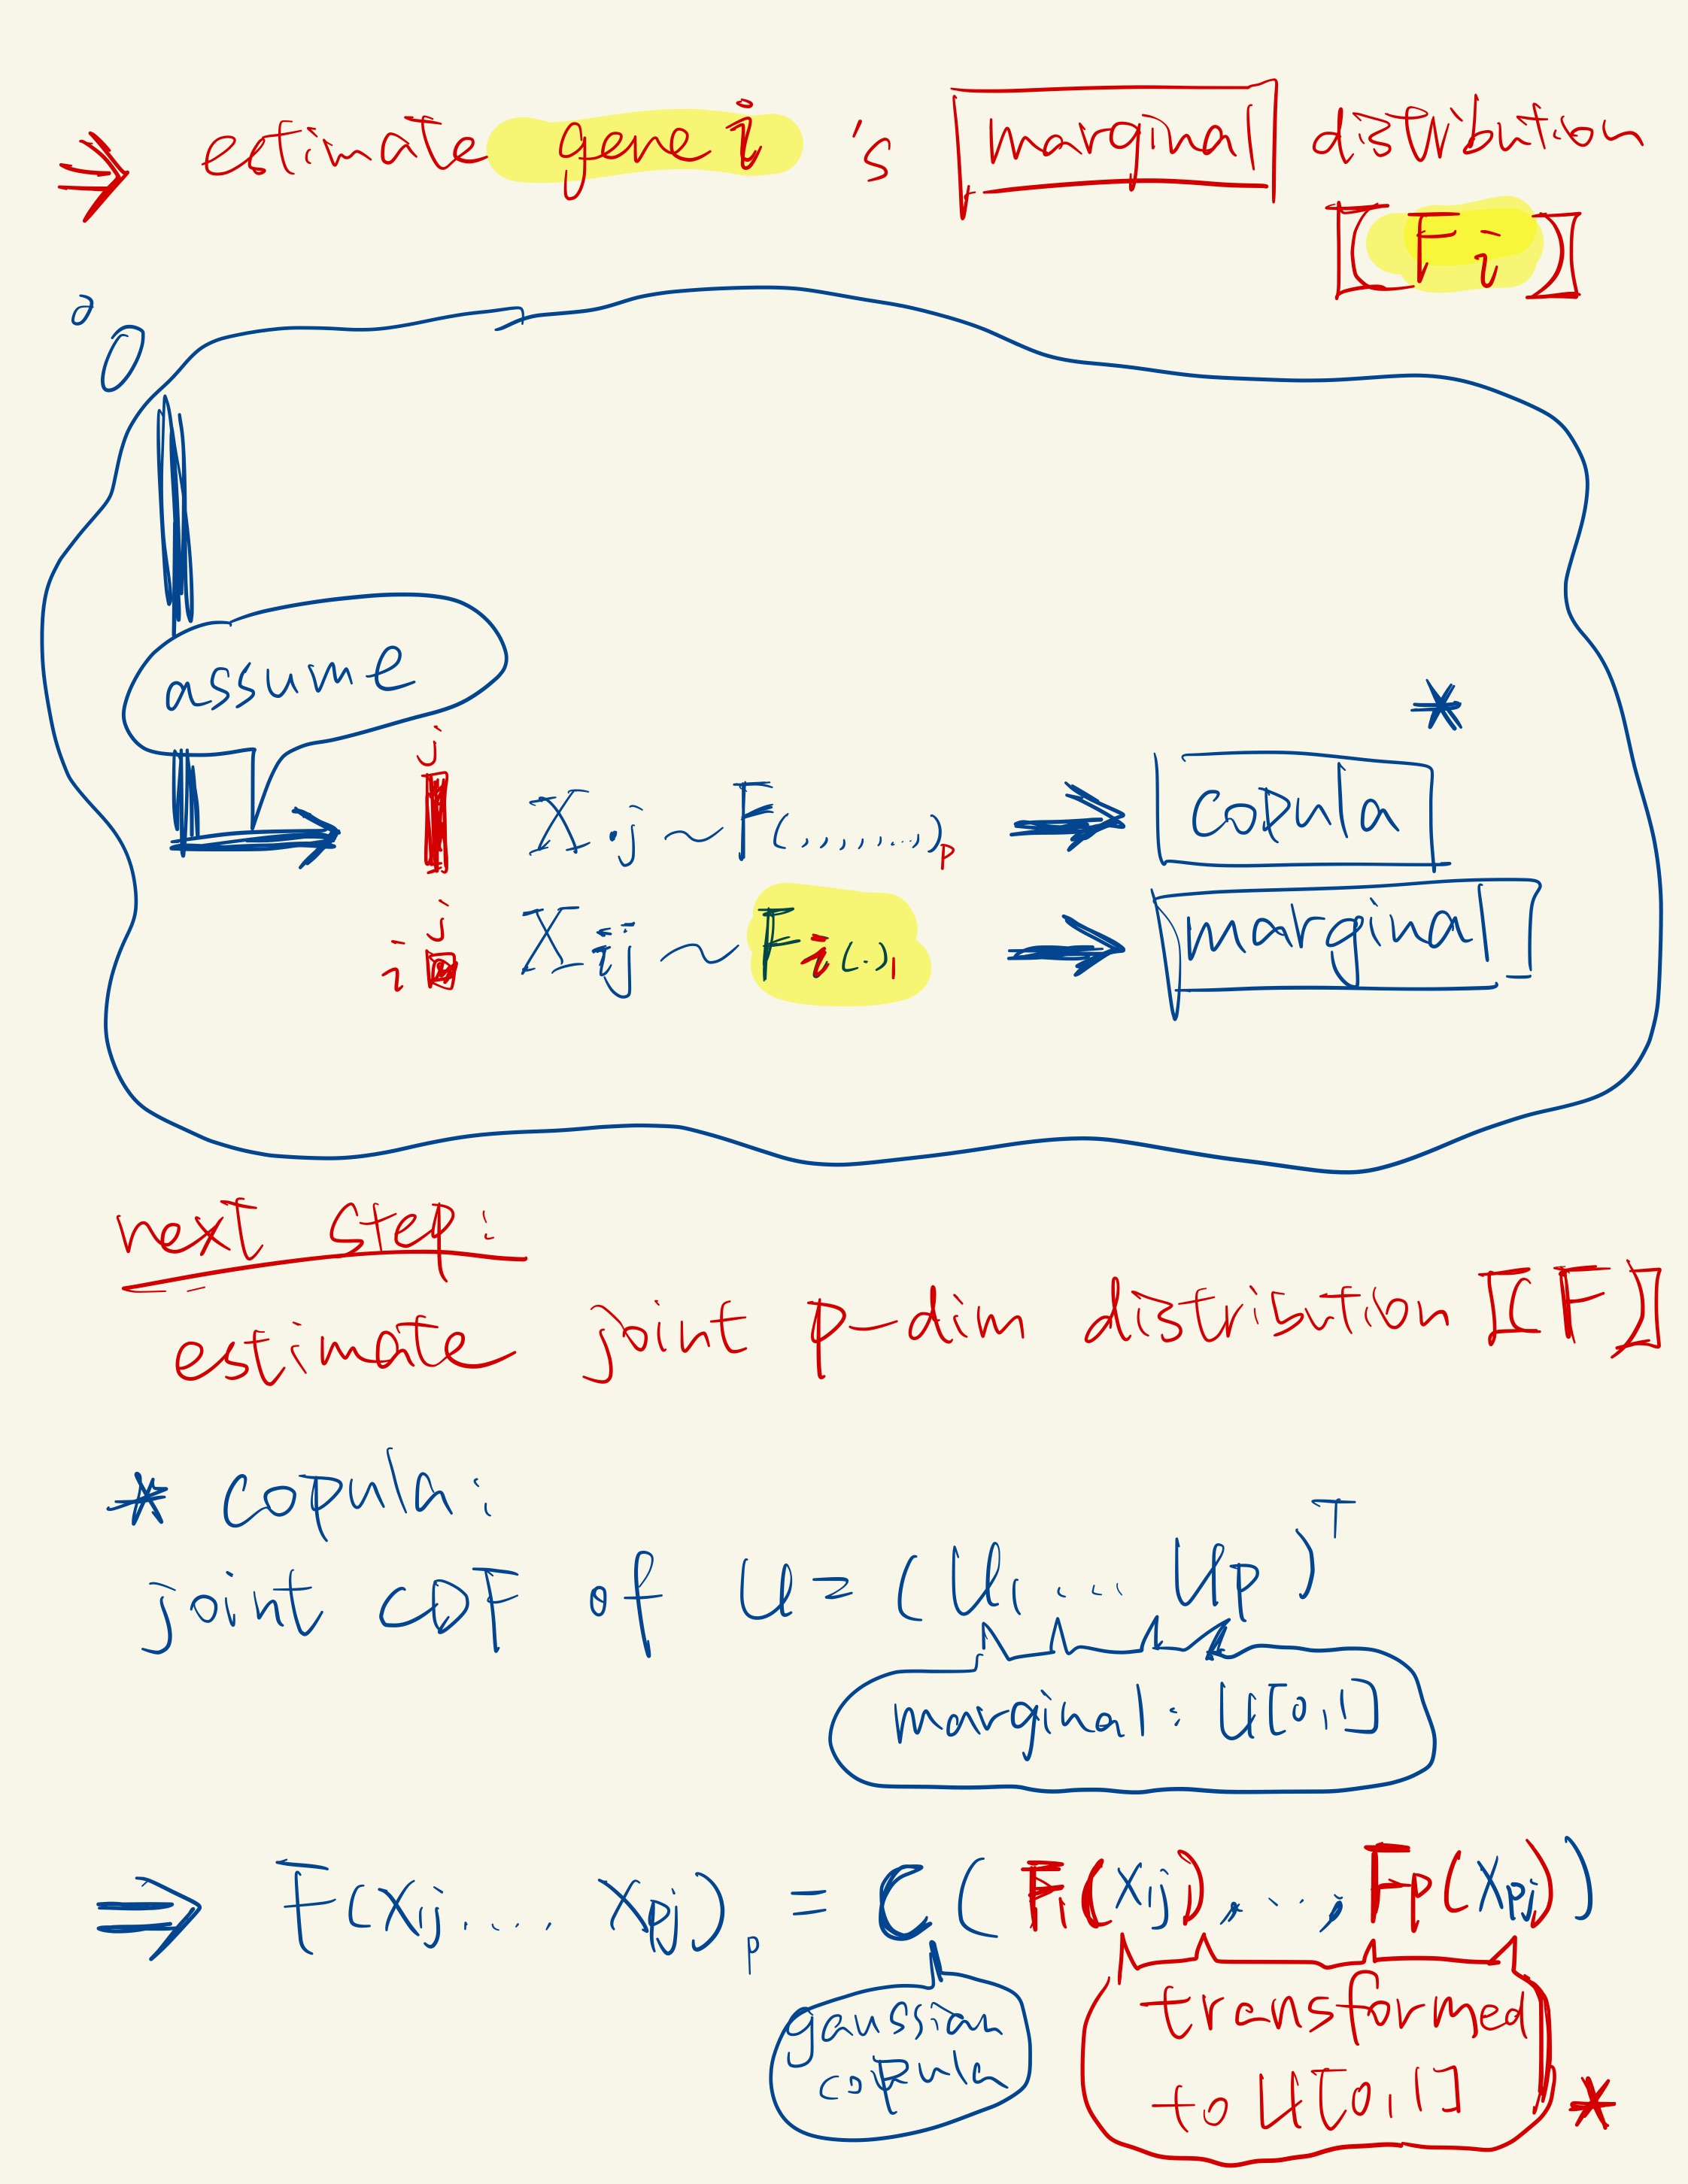 ⇒ estimate gene i 's marginal distribution
[( F i )]
assume
*
j
X.j ~ F(,,,,,,...,)p ⇒ copula
j
i Xij ~ Fi(.)1 ⇒ marginal
next step:
estimate joint p-dim distribution [( F )]
* copula:
joint CDF of U = (U1 ... Up)ᵀ
marginal: U[0,1]
⇒ F(X1j .... Xpj)p = C(F1(X1j),...,Fp(Xpj))
gaussian
copula
transformed
to U[0,1] *